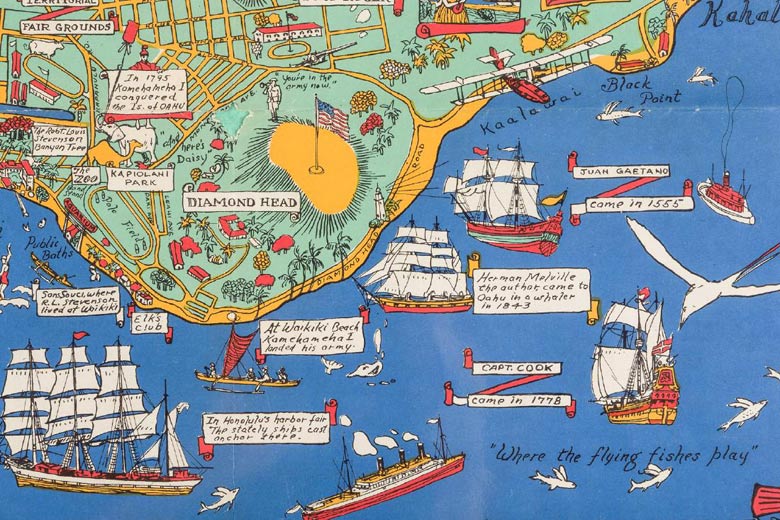 TERRITORIAL
FAIR GROUNDS
In 1795
Kamehameha I
conquered
the Is. of OAHU
"You're in the
army now."
The Robt. Louis
Stevenson
Banyan Tree
The
ZOO
"and
here's
Daisy"
KAPIOLANI
PARK
Polo
Field
DIAMOND HEAD
ROAD
Kaalawai
Black
Point
Kahal
JUAN GAETANO
came in 1555
Public
Baths
Sans Souci, where
R.L. Stevenson
lived at Waikiki
Elks
Club
Herman Melville
the author came to
Oahu in a whaler
in 1843
At Waikiki Beach
Kamehameha I
landed his army.
CAPT. COOK
came in 1778
In Honolulu's harbor fair
The stately ships cast
anchor there.
"Where the flying fishes play"